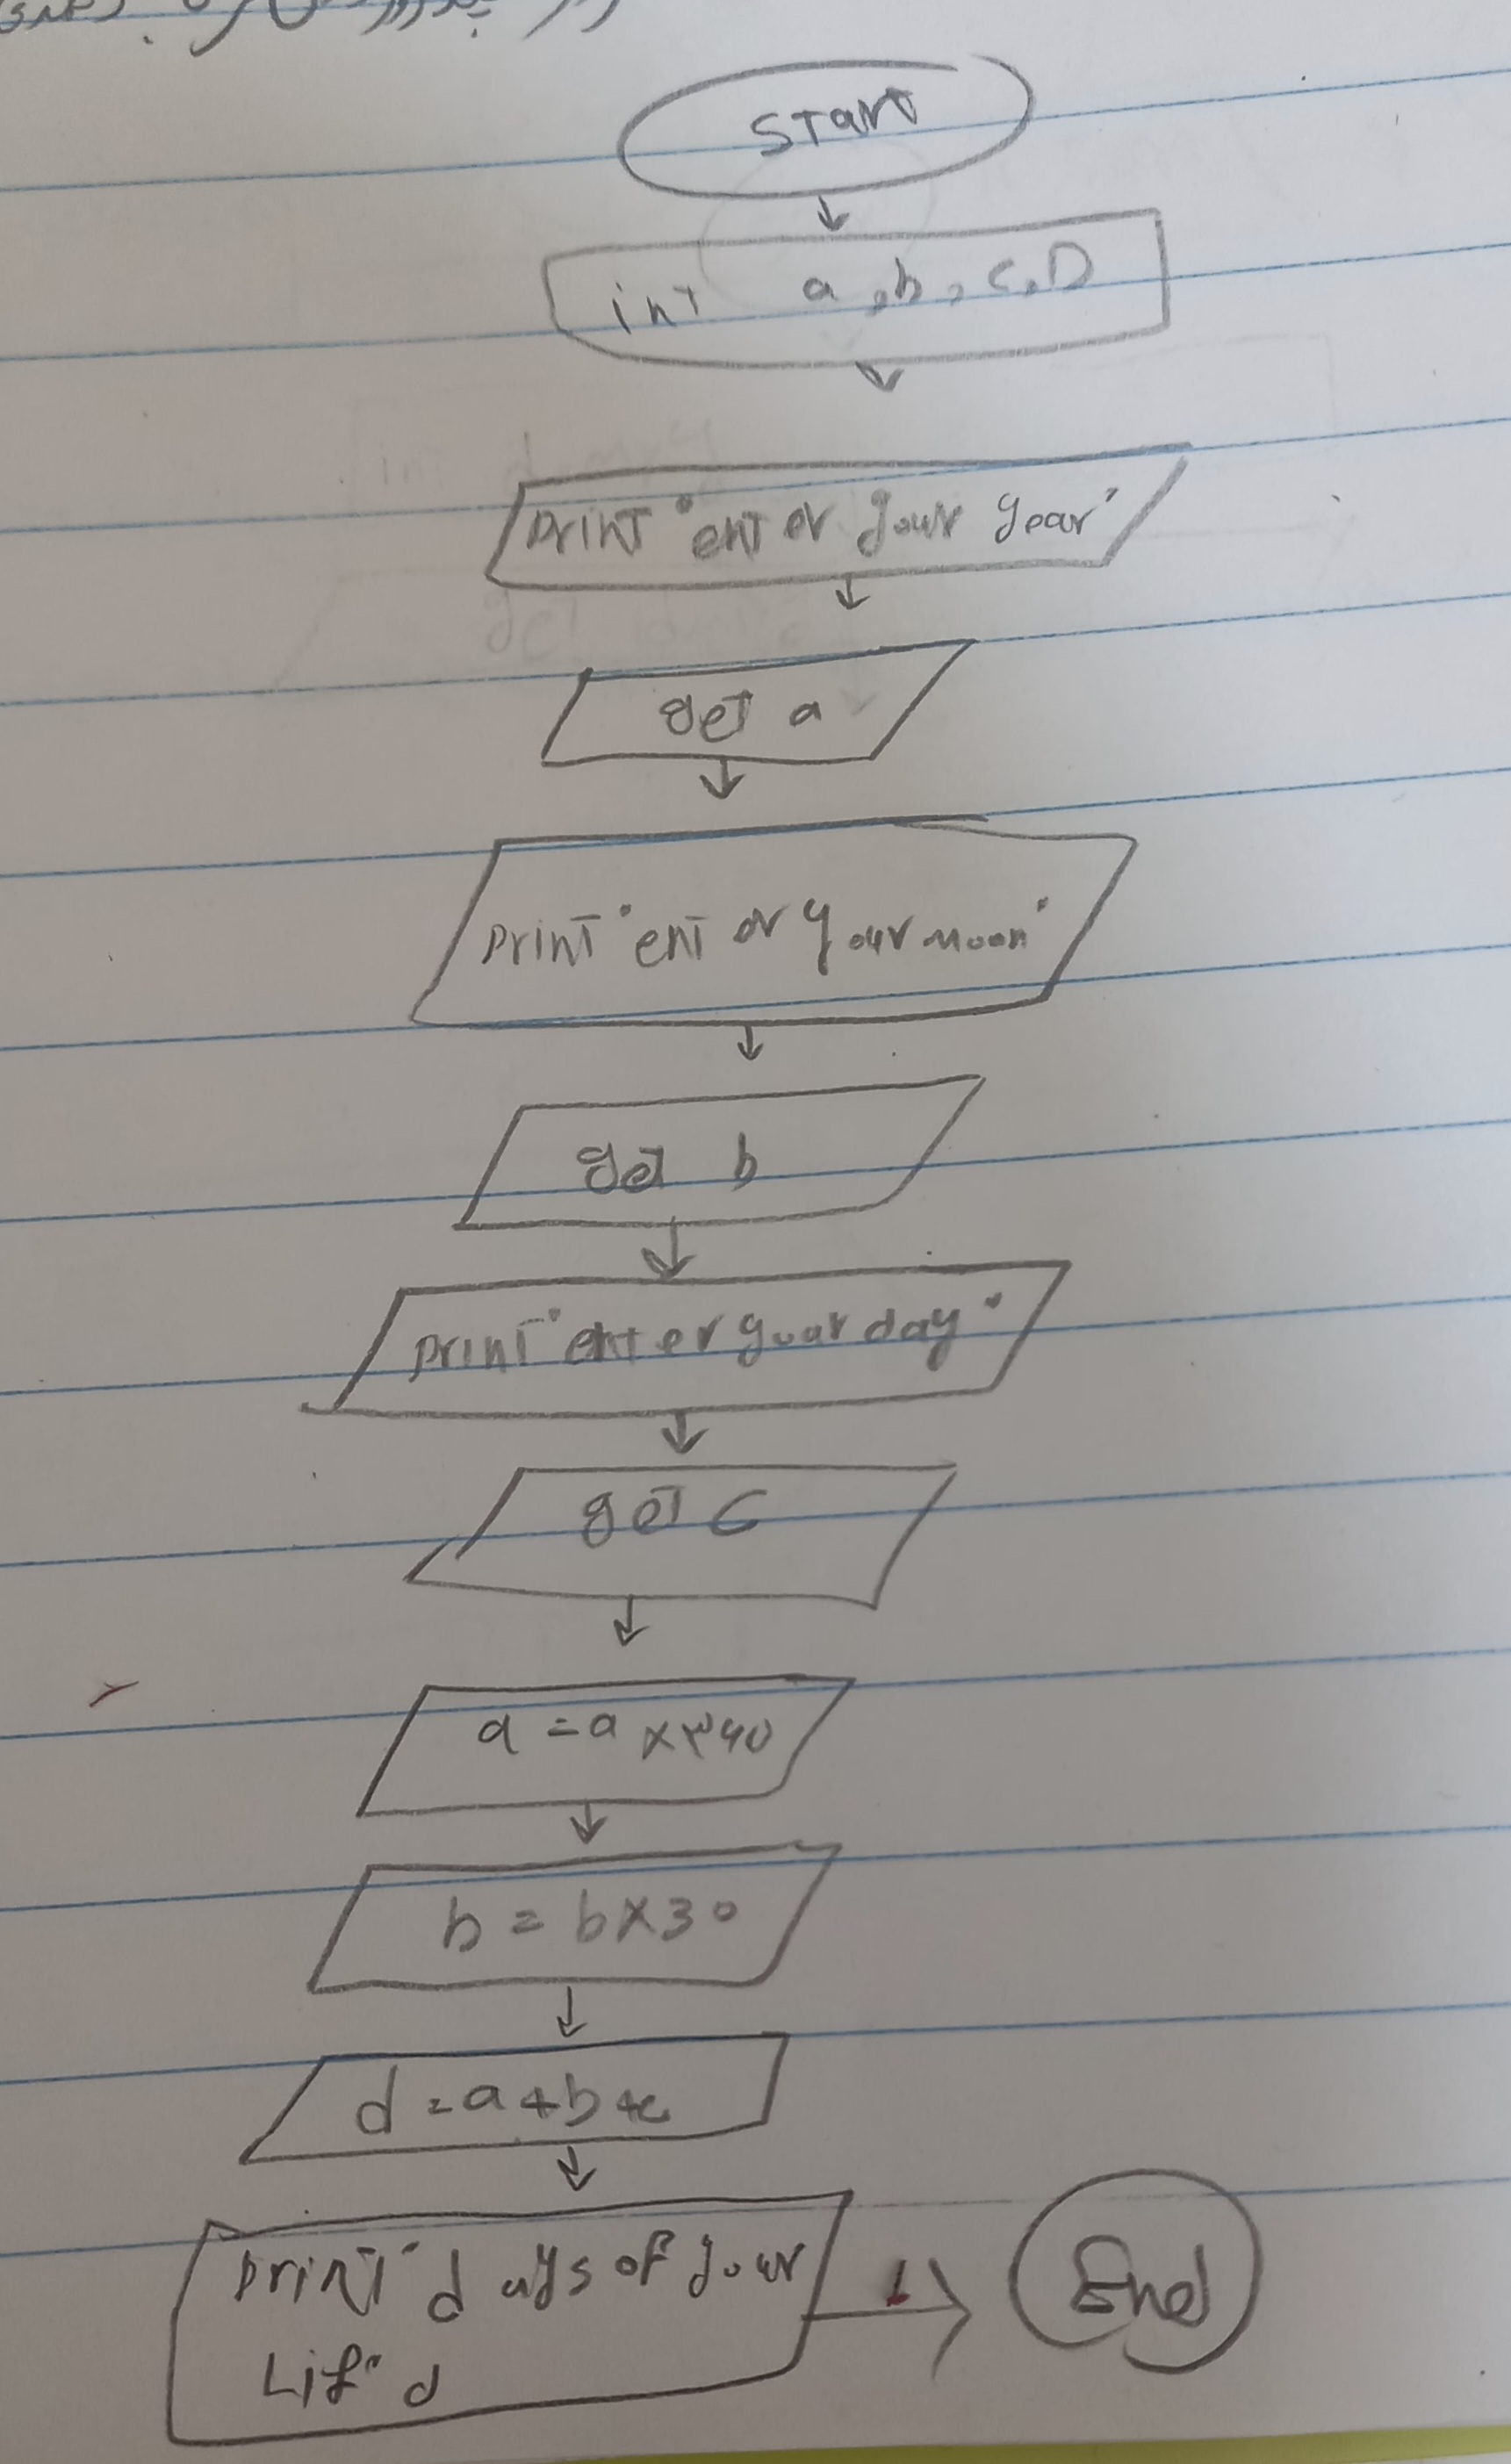 START
int a,b,c,D
print "enter your year"
get a
print "enter your moon"
get b
print "enter your day"
get c
a=a×۳۶۵
b=b×30
d=a+b+c
print "days of your
Lif" d
End